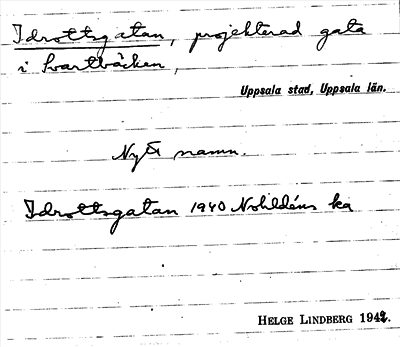 Idrottsgatan, projekterad gata
i Svartbäcken,
Uppsala stad, Uppsala län.
Nytt namn.
Idrottsgatan 1940 Nohldéns ka
HELGE LINDBERG 1942.